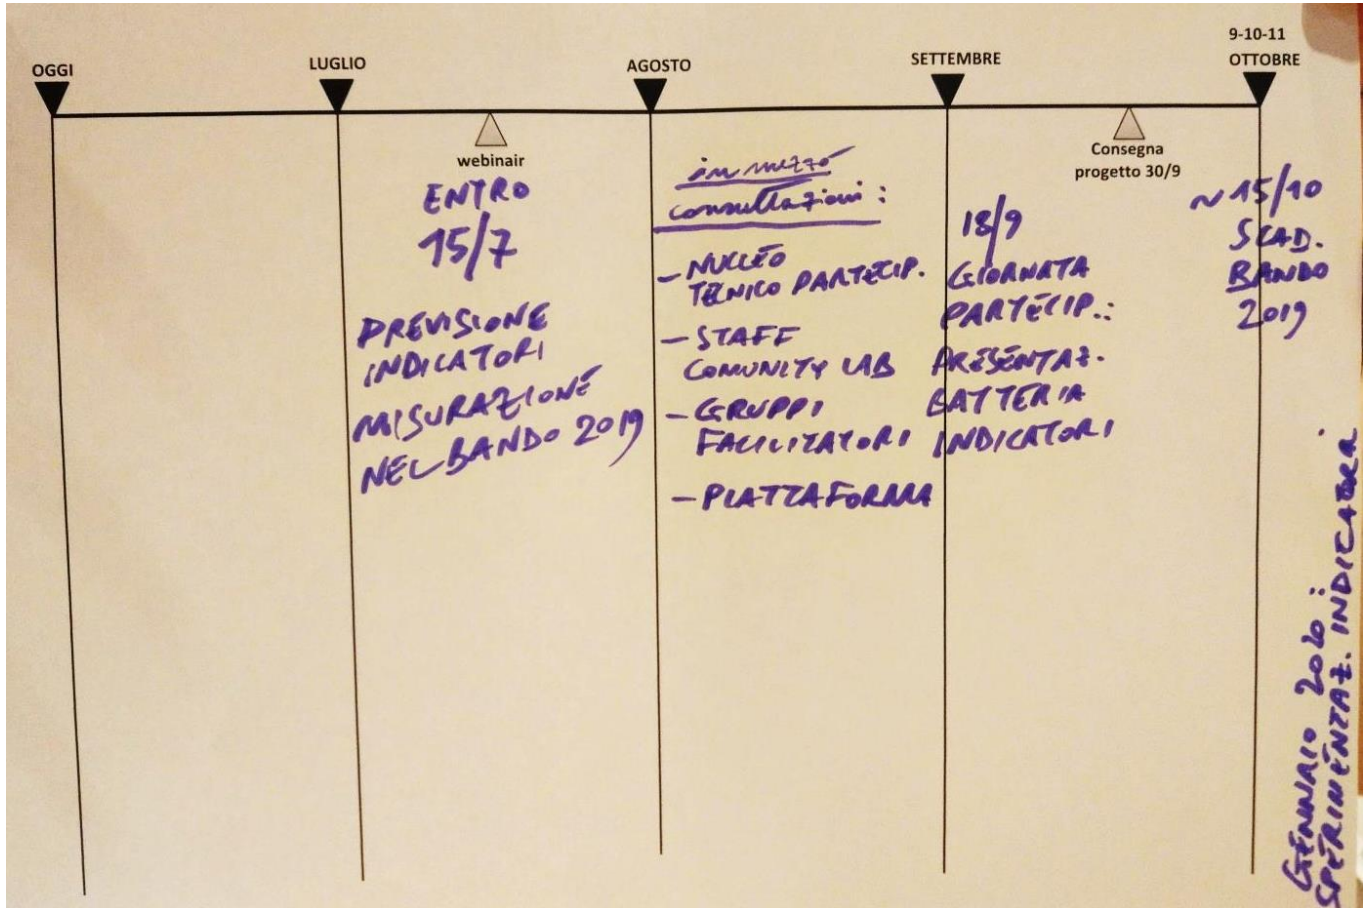 OGGI
LUGLIO
AGOSTO
SETTEMBRE
9-10-11
OTTOBRE
webinair
Consegna
progetto 30/9
ENTRO
15/7
PREVISIONE
INDICATORI
MISURAZIONE
NEL BANDO 2019
in mezzo
consultazioni:
- NUCLEO
TECNICO PARTECIP.
- STAFF
COMUNITY LAB
- GRUPPI
FACILITATORI
- PIATTAFORMA
18/9
GIORNATA
PARTECIP.:
PRESENTAZ.
BATTERIA
INDICATORI
~15/10
SCAD.
BANDO
2019
GENNAIO 2020:
SPERIMENTAZ. INDICATORI